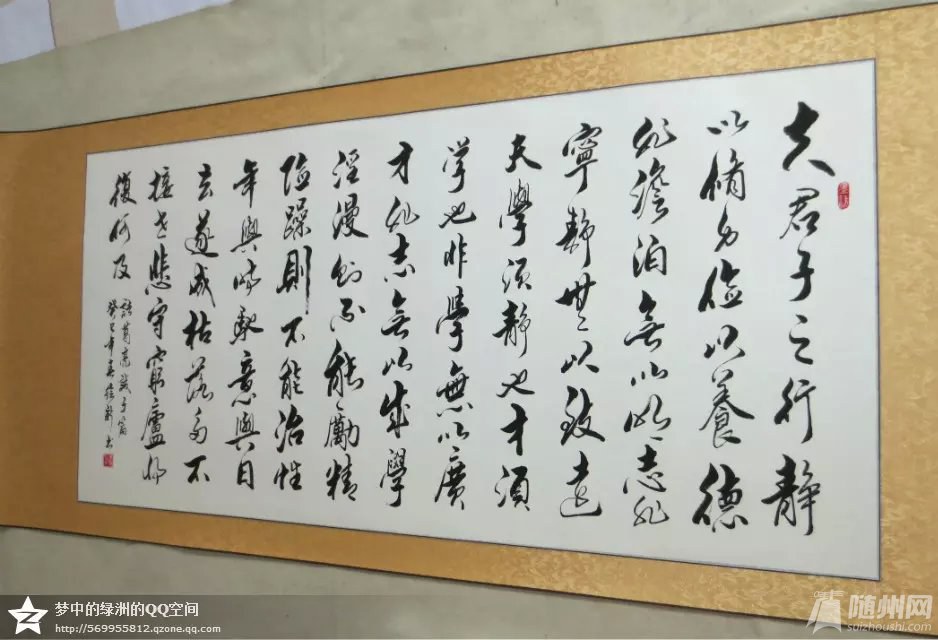 夫君子之行静
以脩身儉以養德
非澹泊無以明志非
寧静無以致遠
夫學須静也才須
学也非學無以廣
才非志無以成學
淫漫則不能勵精
险躁則不能治性
年與時馳意與日
去遂成枯落多不
接世悲守窮廬将
復何及
諸葛亮誡子篇
癸巳年 書
梦中的绿洲的QQ空间
http://569955812.qzone.qq.com
随州网
suizhoushi.com